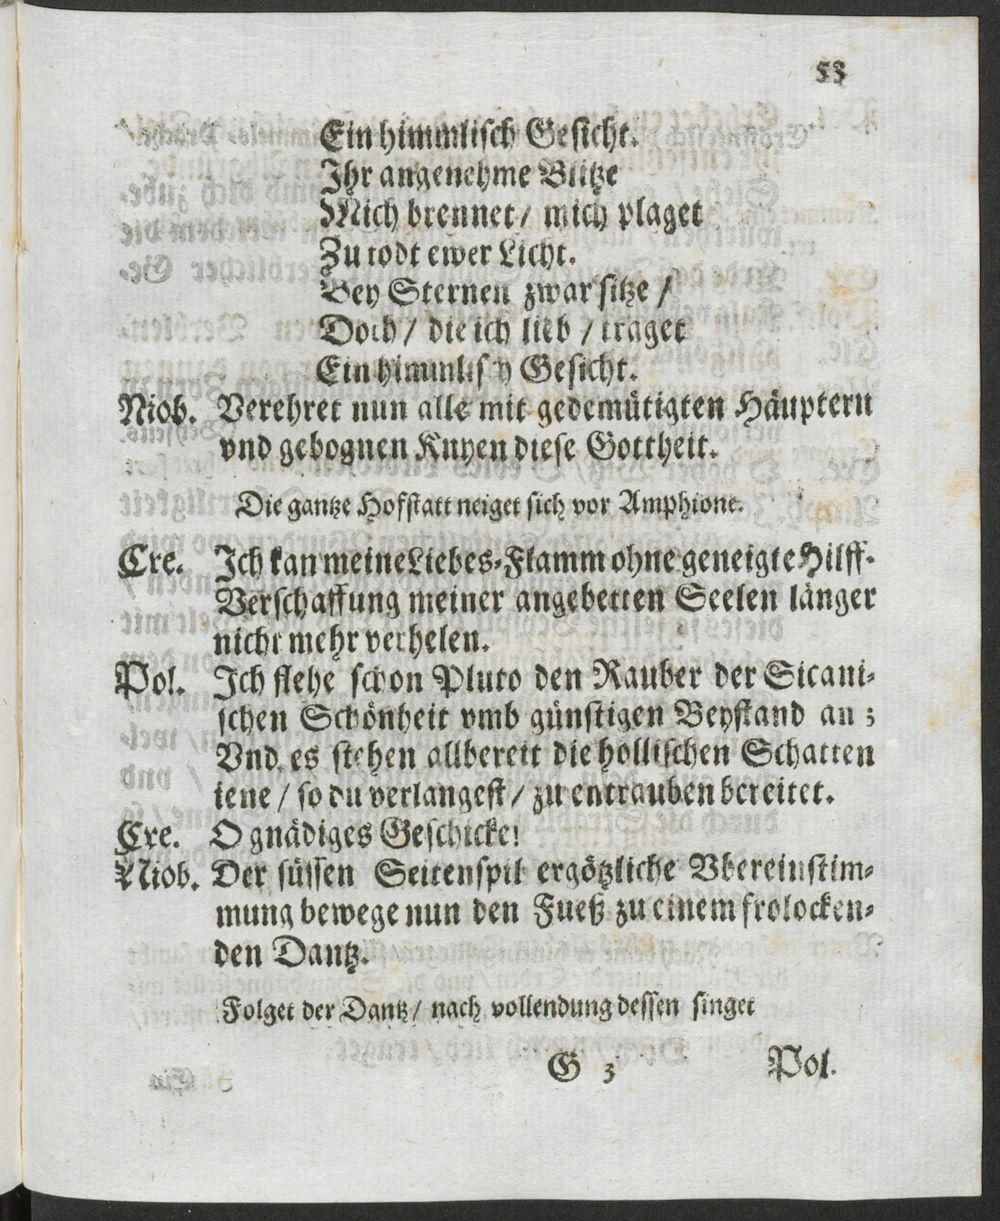 53
Ein himmlisch Gesicht.
Ihr angenehme Blitze
Mich brennet / mich plaget
Zu todt ewer Licht.
Bey Sternen zwar sitze /
Doch / die ich lieb / traget
Ein himmlisch Gesicht.
Niob. Verehret nun alle mit gedemütigten Häuptern
vnd gebognen Knyen diese Gottheit.
Die gantze Hofstatt neiget sich vor Amphione.
Cre. Ich kan meine Liebes-Flamm ohne geneigte Hilff-
Verschaffung meiner angebetten Seelen länger
nicht mehr verhelen.
Pol. Ich flehe schon Pluto den Rauber der Sicani-
schen Schönheit vmb günstigen Beystand an ;
Vnd es stehen allbereit die höllischen Schatten
jene / so du verlangest / zu entrauben bereitet.
Cre. O gnädiges Geschicke!
Niob. Der süssen Seitenspil ergötzliche Vbereinstim-
mung bewege nun den Fueß zu einem frolocken-
den Dantz.
Folget der Dantz / nach vollendung dessen singet
G 3 Pol.